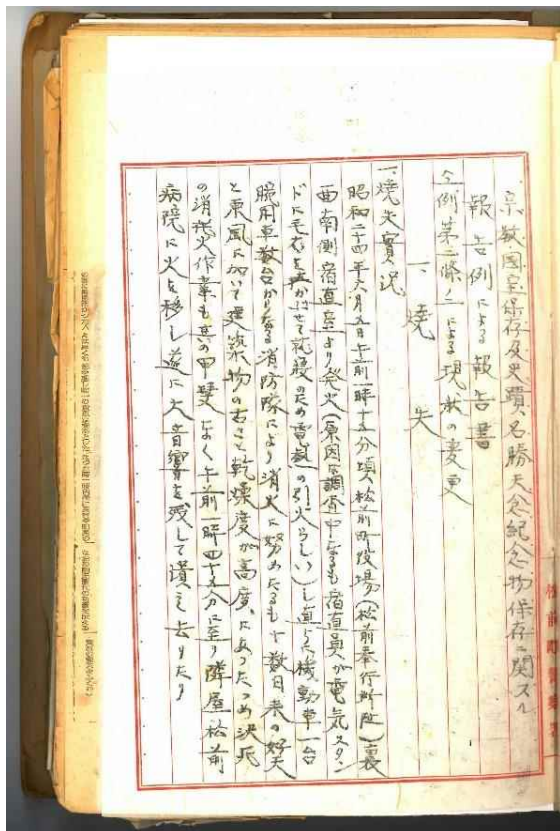 宗教國宝保存及史蹟名勝天然紀念物保存ニ関スル
報告例による報告書
仝例第二條 による現状の変更
一、焼失
一、燒失實況
昭和二十四年六月五日午前一時十五分頃、松前町役場(松前奉行所趾)裏
西南側宿直室より発火(原因は調査中なるも宿直員が電気スタン
ドに毛布を かぶせて就寝のため電熱の引火らしい)し直ちに機動車一台
腕用車数台からなる消防隊により消火に努めたるも十数日来の好天
と東風に加いて建築物の古さと乾燥度が高度にあつたつめ決死
の消火作業も其の甲斐なく午前一時四十五分に至り隣屋松前
病院に火を移し遂に大音響を残して潰え去りたり